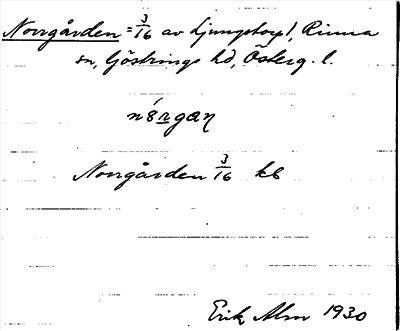 Norrgården = 3/16 av Ljungstorp 1, Rinna
sn, Göstrings hd, Österg. l.
nórgaɳ
Norrgården 3/16 kb
Erik Alm 1930